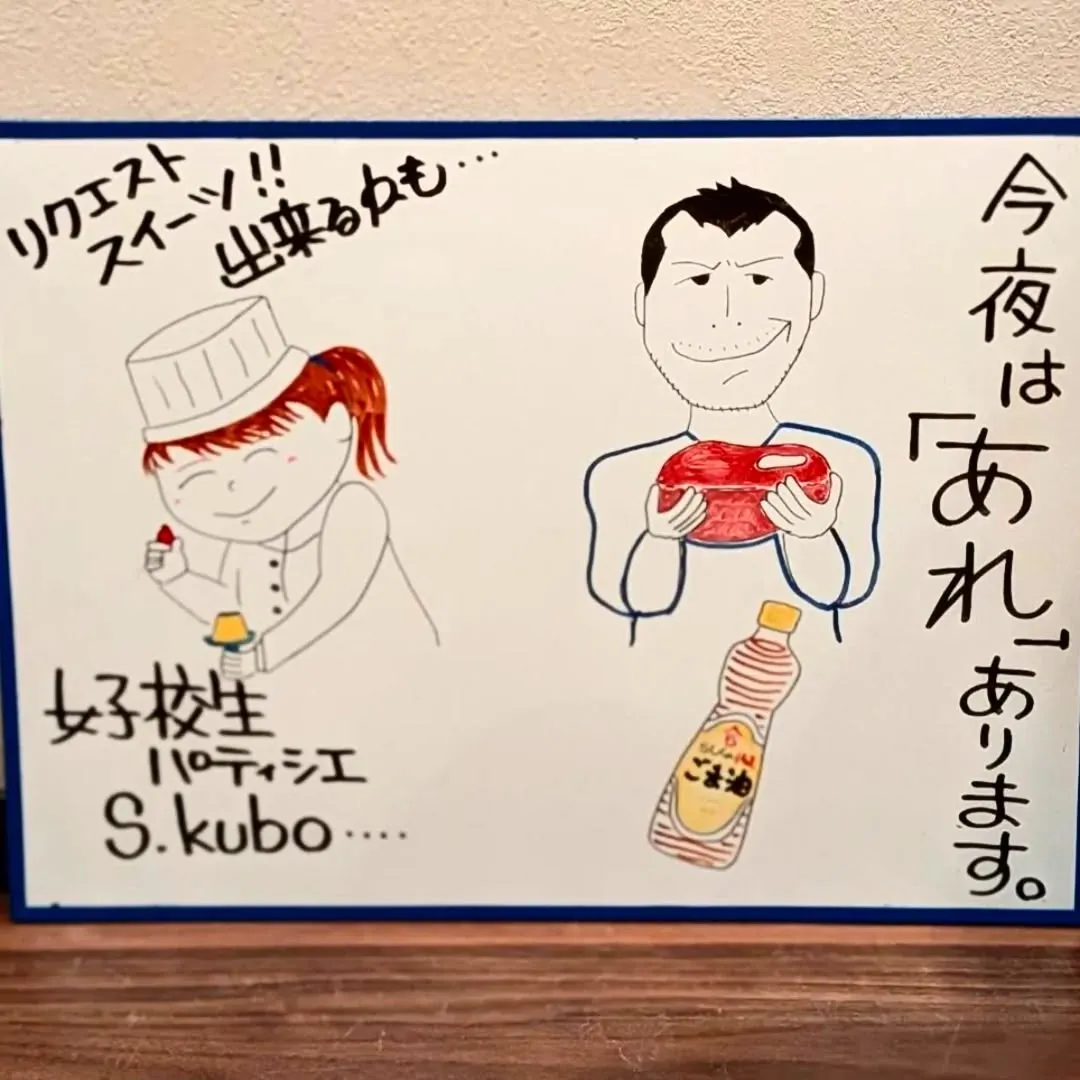 リクエスト
スイーツ!!
出来るかも…
女子校生
パティシエ
S.kubo....
今夜は「あれ」あります。
ごま油